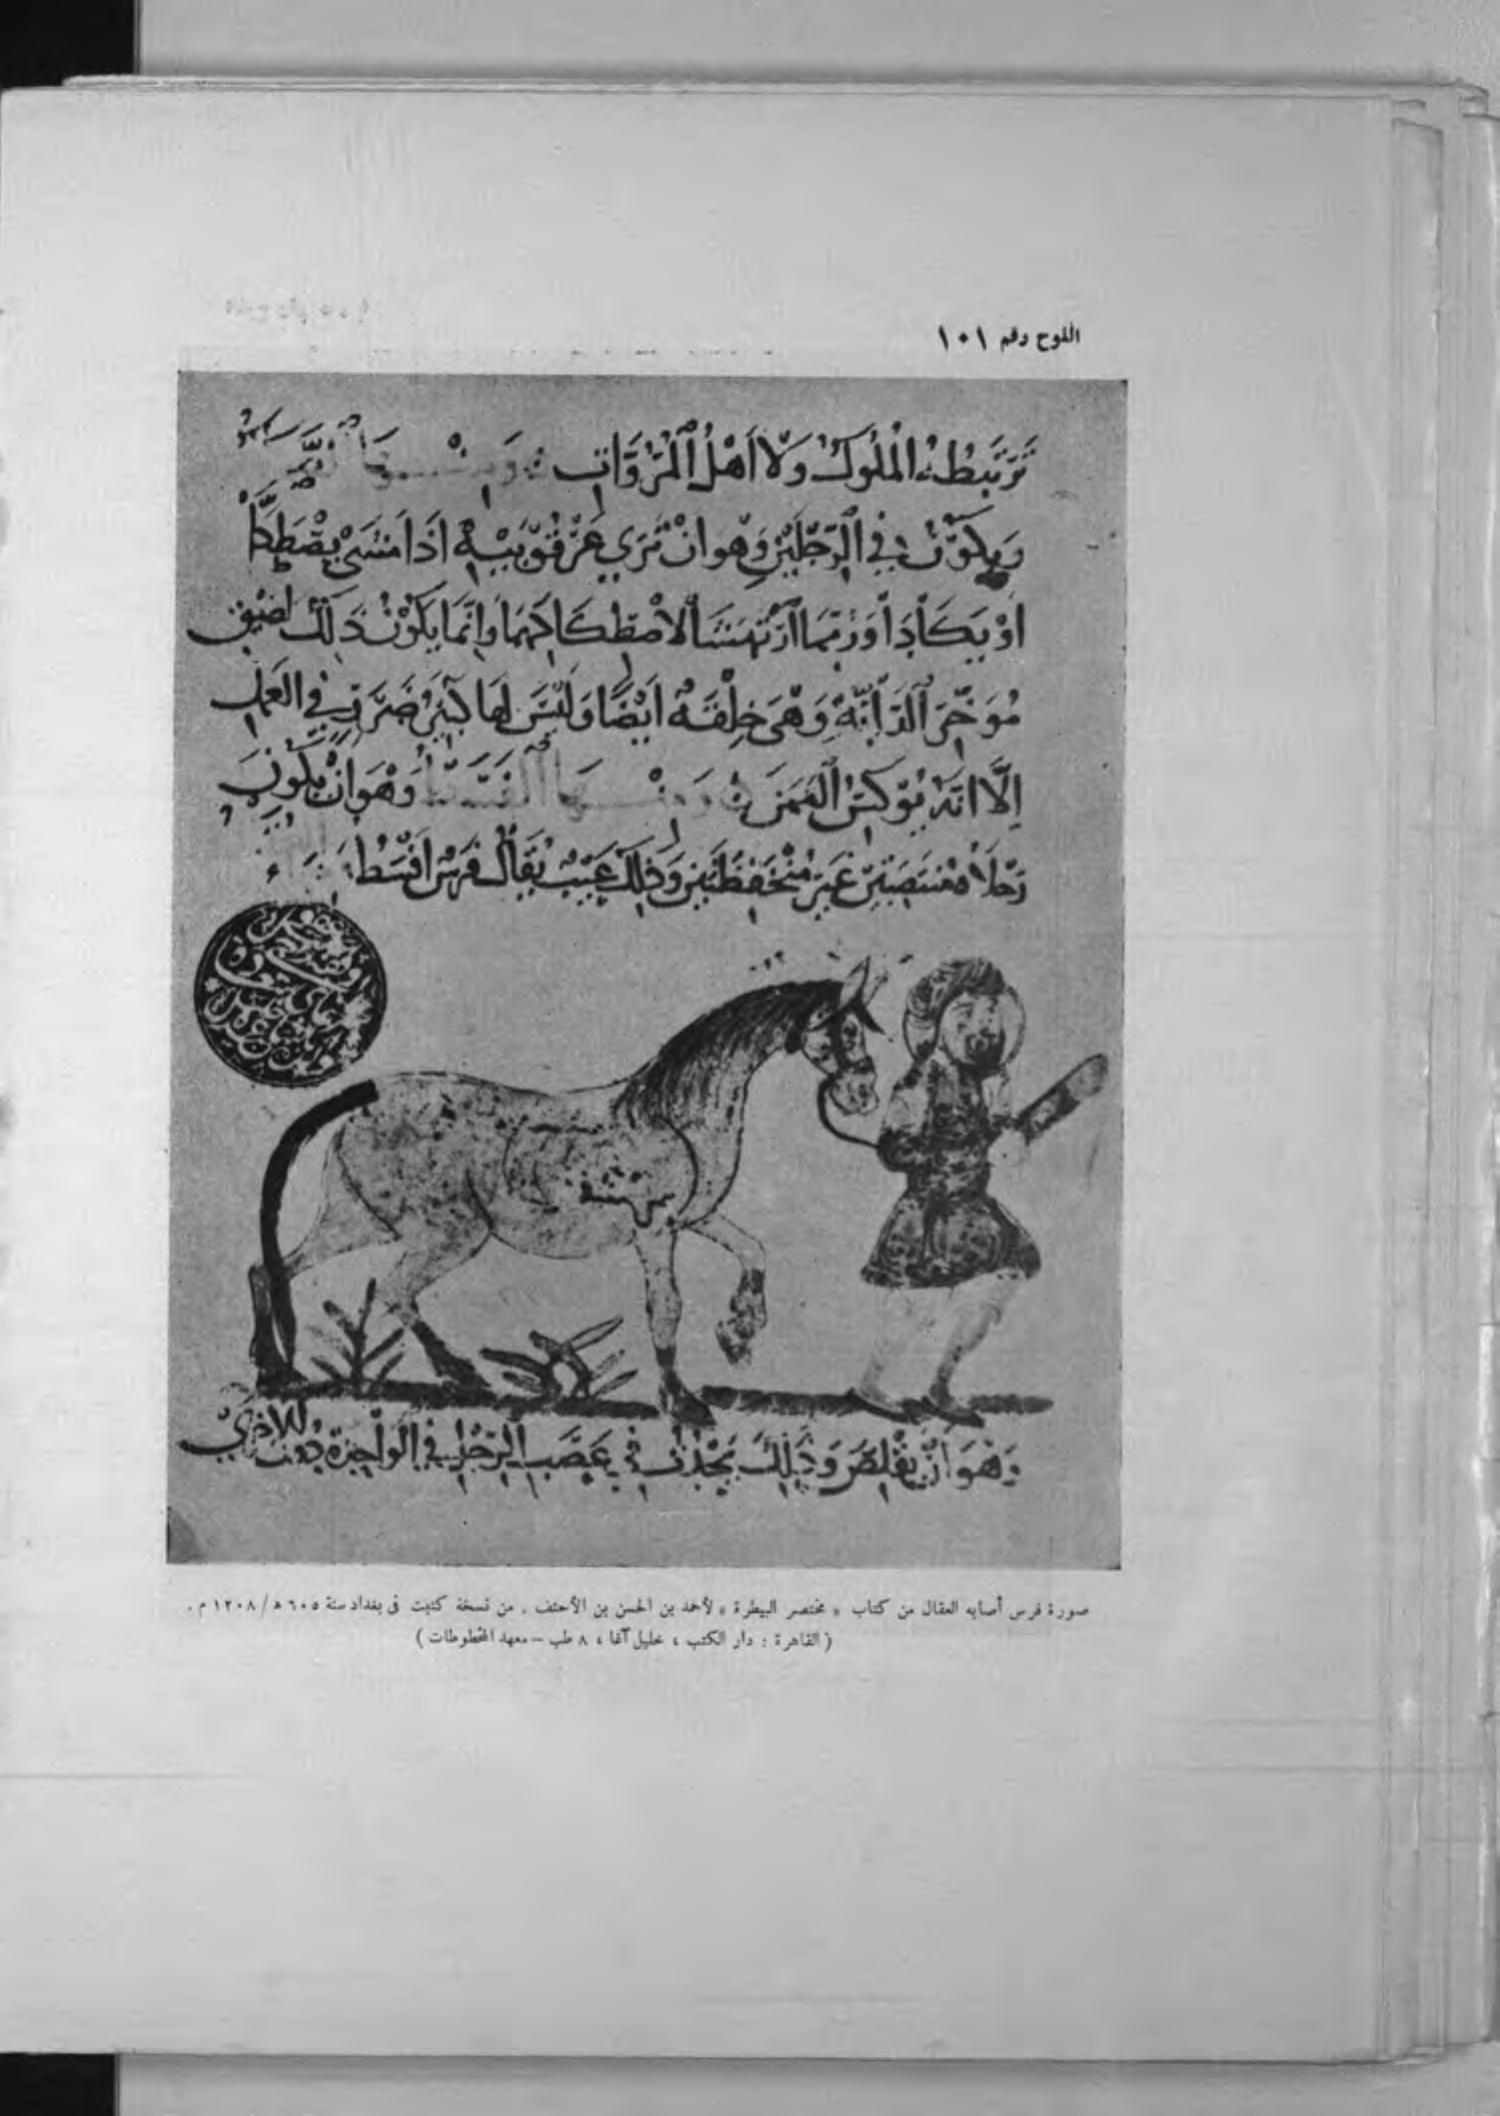 اللوح رقم ١٠١
تَرتَبِطُهُ الْمُلُوكُ وَلَا اَهْلُ الْمُرُوَّاتِ وَمِنْهَا
وَيَكُوْنُ فِي الرِّجْلَيْنِ وَهُوَ انْ تَرَي عَرْقُوْبَيْهِ اذَا مَشَىْ يَصْطَكَّا
اوْ يَكَادَا وَرُبَّمَا الاصْطِكَاكِهِمَا وَانَّمَا يَكُوْنُ ذَلِكَ لِضِيْقِ
مُوَخَّرِ الدَّابَّةِ وَهْىَ خِلْقَهُ اَيْضًا وَلَيْسَ لَهَا كَبِيْرُ مَضَرَّةٍ فِي العَمَلِ
اِلَّا انَّهُ يُوْكِسُ الثَمَنَ وَمِنْهَا وَهْوَ انْ يَكُونَ
رِجْلَاهُ مُنْتَصِبَتَيْنِ غَيْرَ وَذلِكَ عَيْبٌ يُقَالُ فَرَسٌ اَقْسَطُ
وَهْوَ انْ يَقْلِصَ وَذَلِكَ يَحْدُثُ فِي عَصَبِ الرِّجْلِ فِي الوَاحِدَةِ دُونَ الاخْرَيْ
صورة فرس أصابه العقال من كتاب « مختصر البيطرة » لأحمد بن الحسن بن الأحنف . من نسخة كتبت فى بغداد سنة ٦٠٥ ه / ١٢٠٨ م .
( القاهرة : دار الكتب ، خليل آغا ، ٨ طب – معهد المخطوطات )